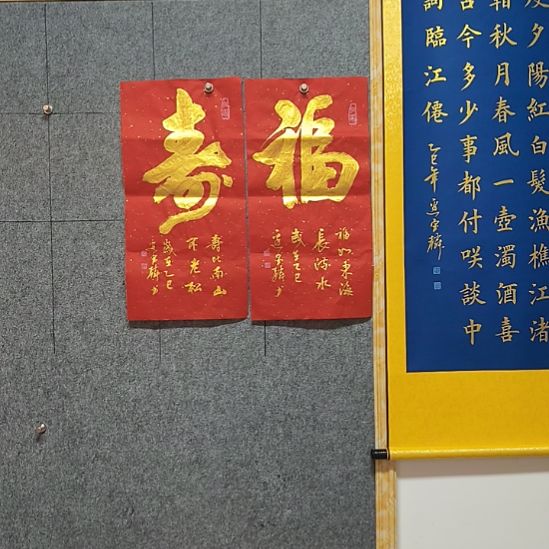 夕陽紅白髮漁樵江渚
秋月春風一壺濁酒喜
古今多少事都付咲談中
詞臨江僊
乙巳年
福
福如東海
長流水
歲在乙巳
書
壽
壽比南山
不老松
歲在乙巳
書